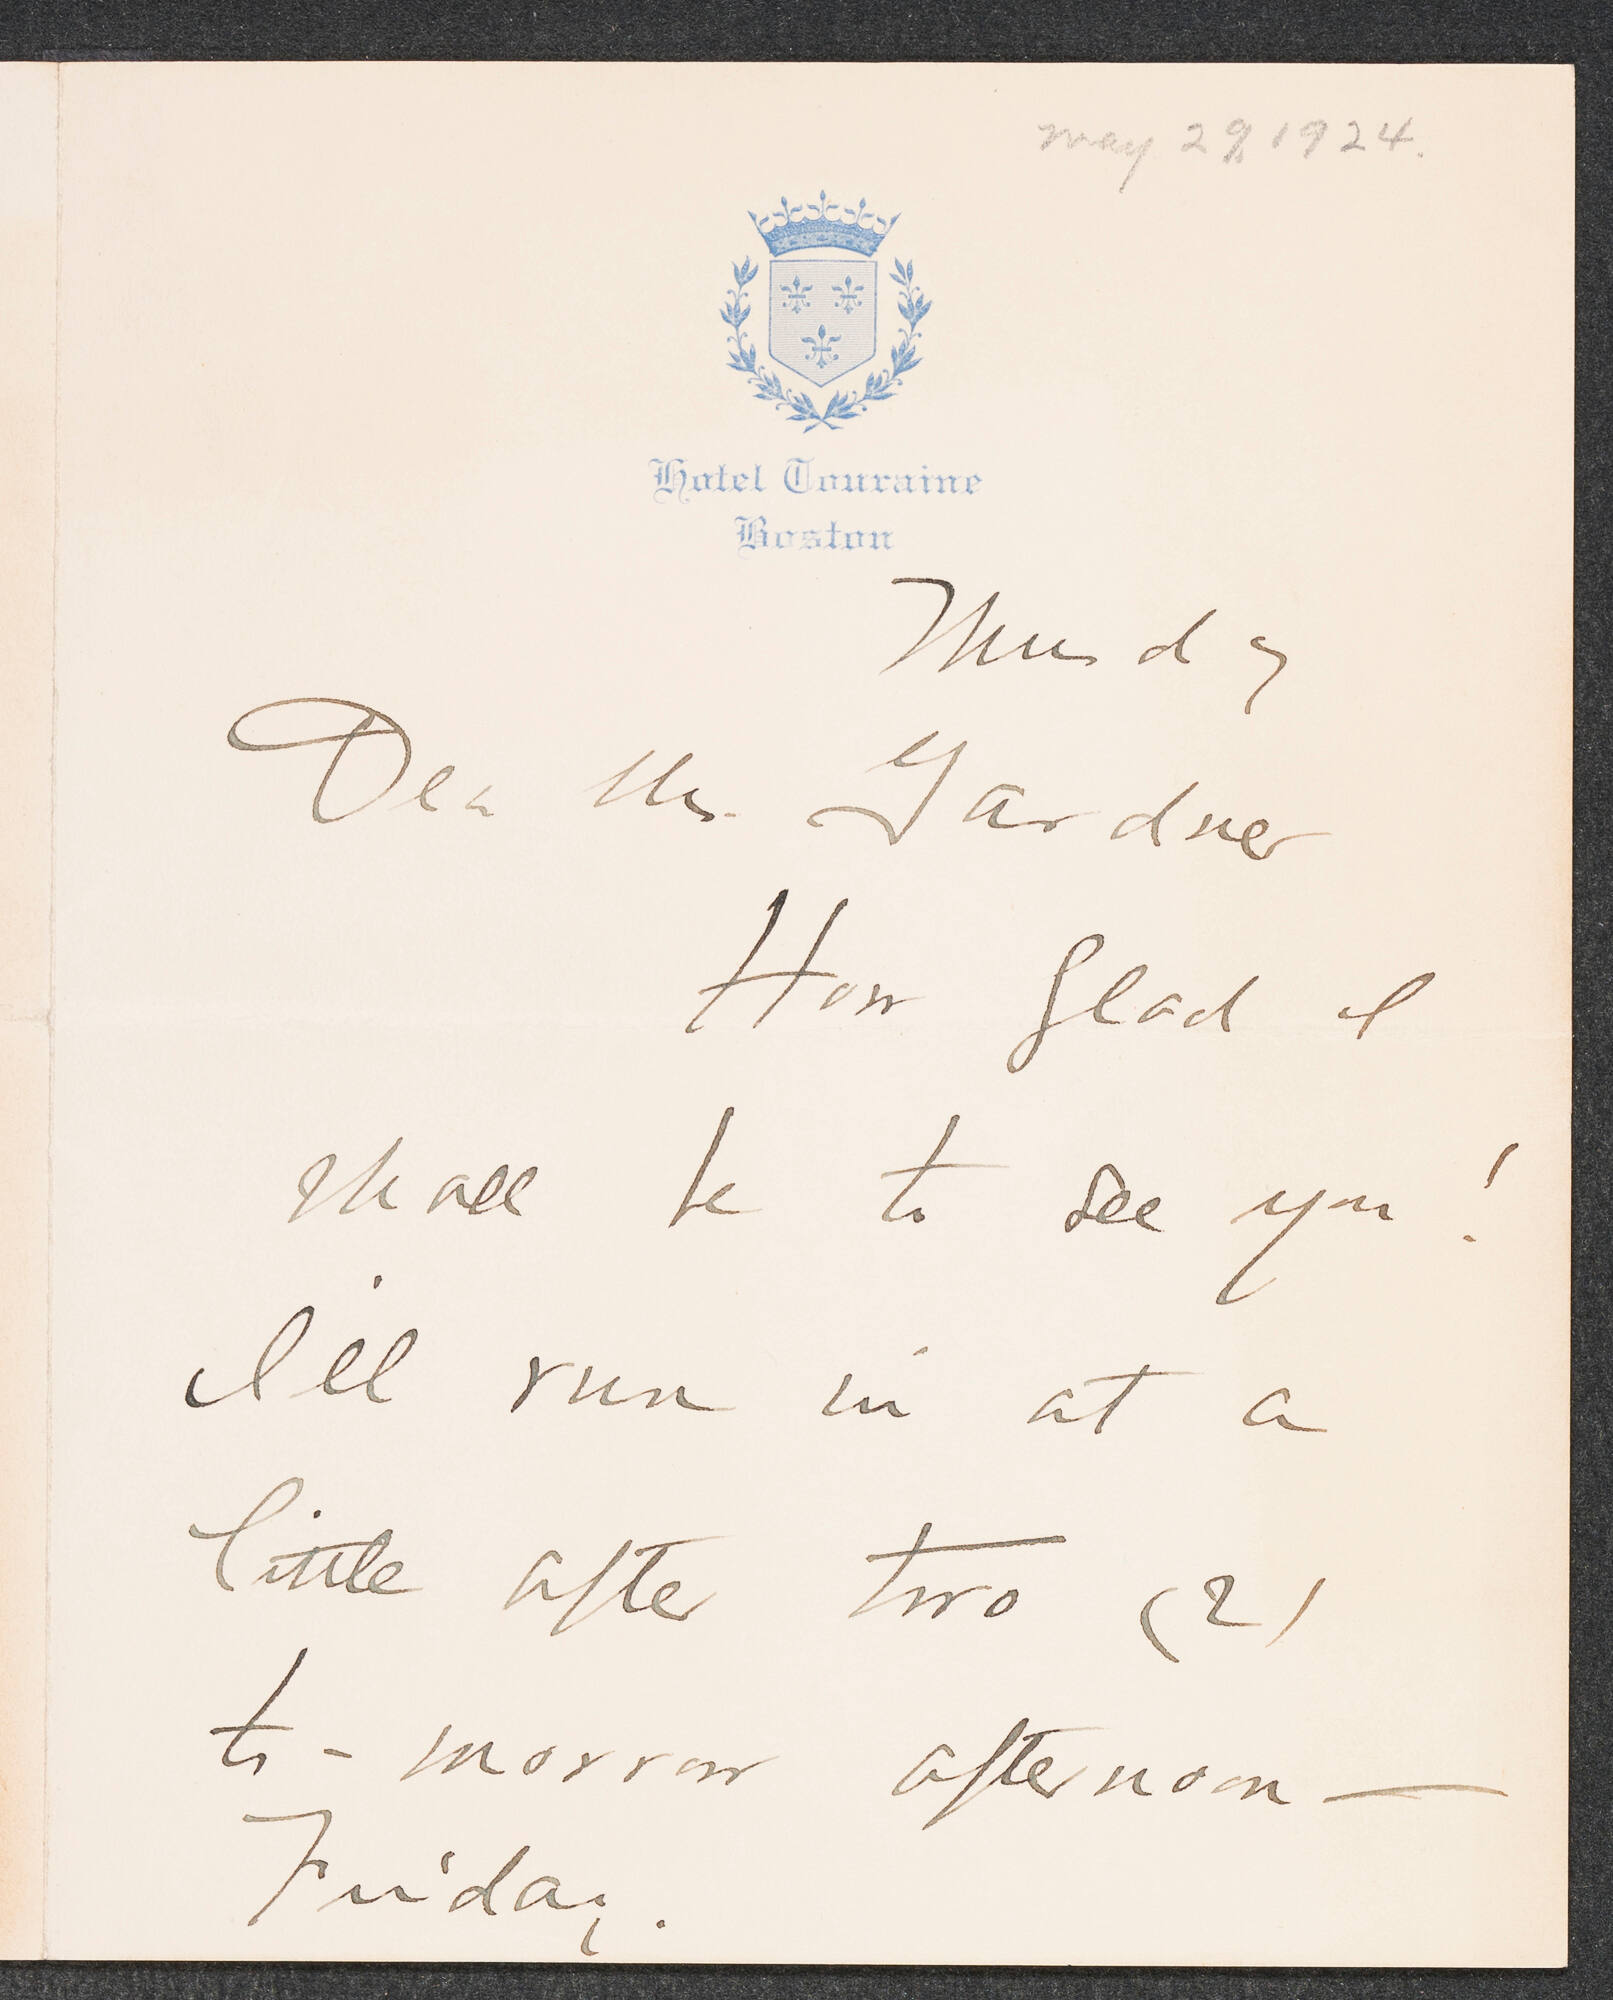 May 29, 1924.
Hotel Touraine
Boston
Thursday
Dear Mrs. Gardner
How glad I
shall be to see you!
I'll run in at a
little after two (2)
to-morrow afternoon—
Friday.